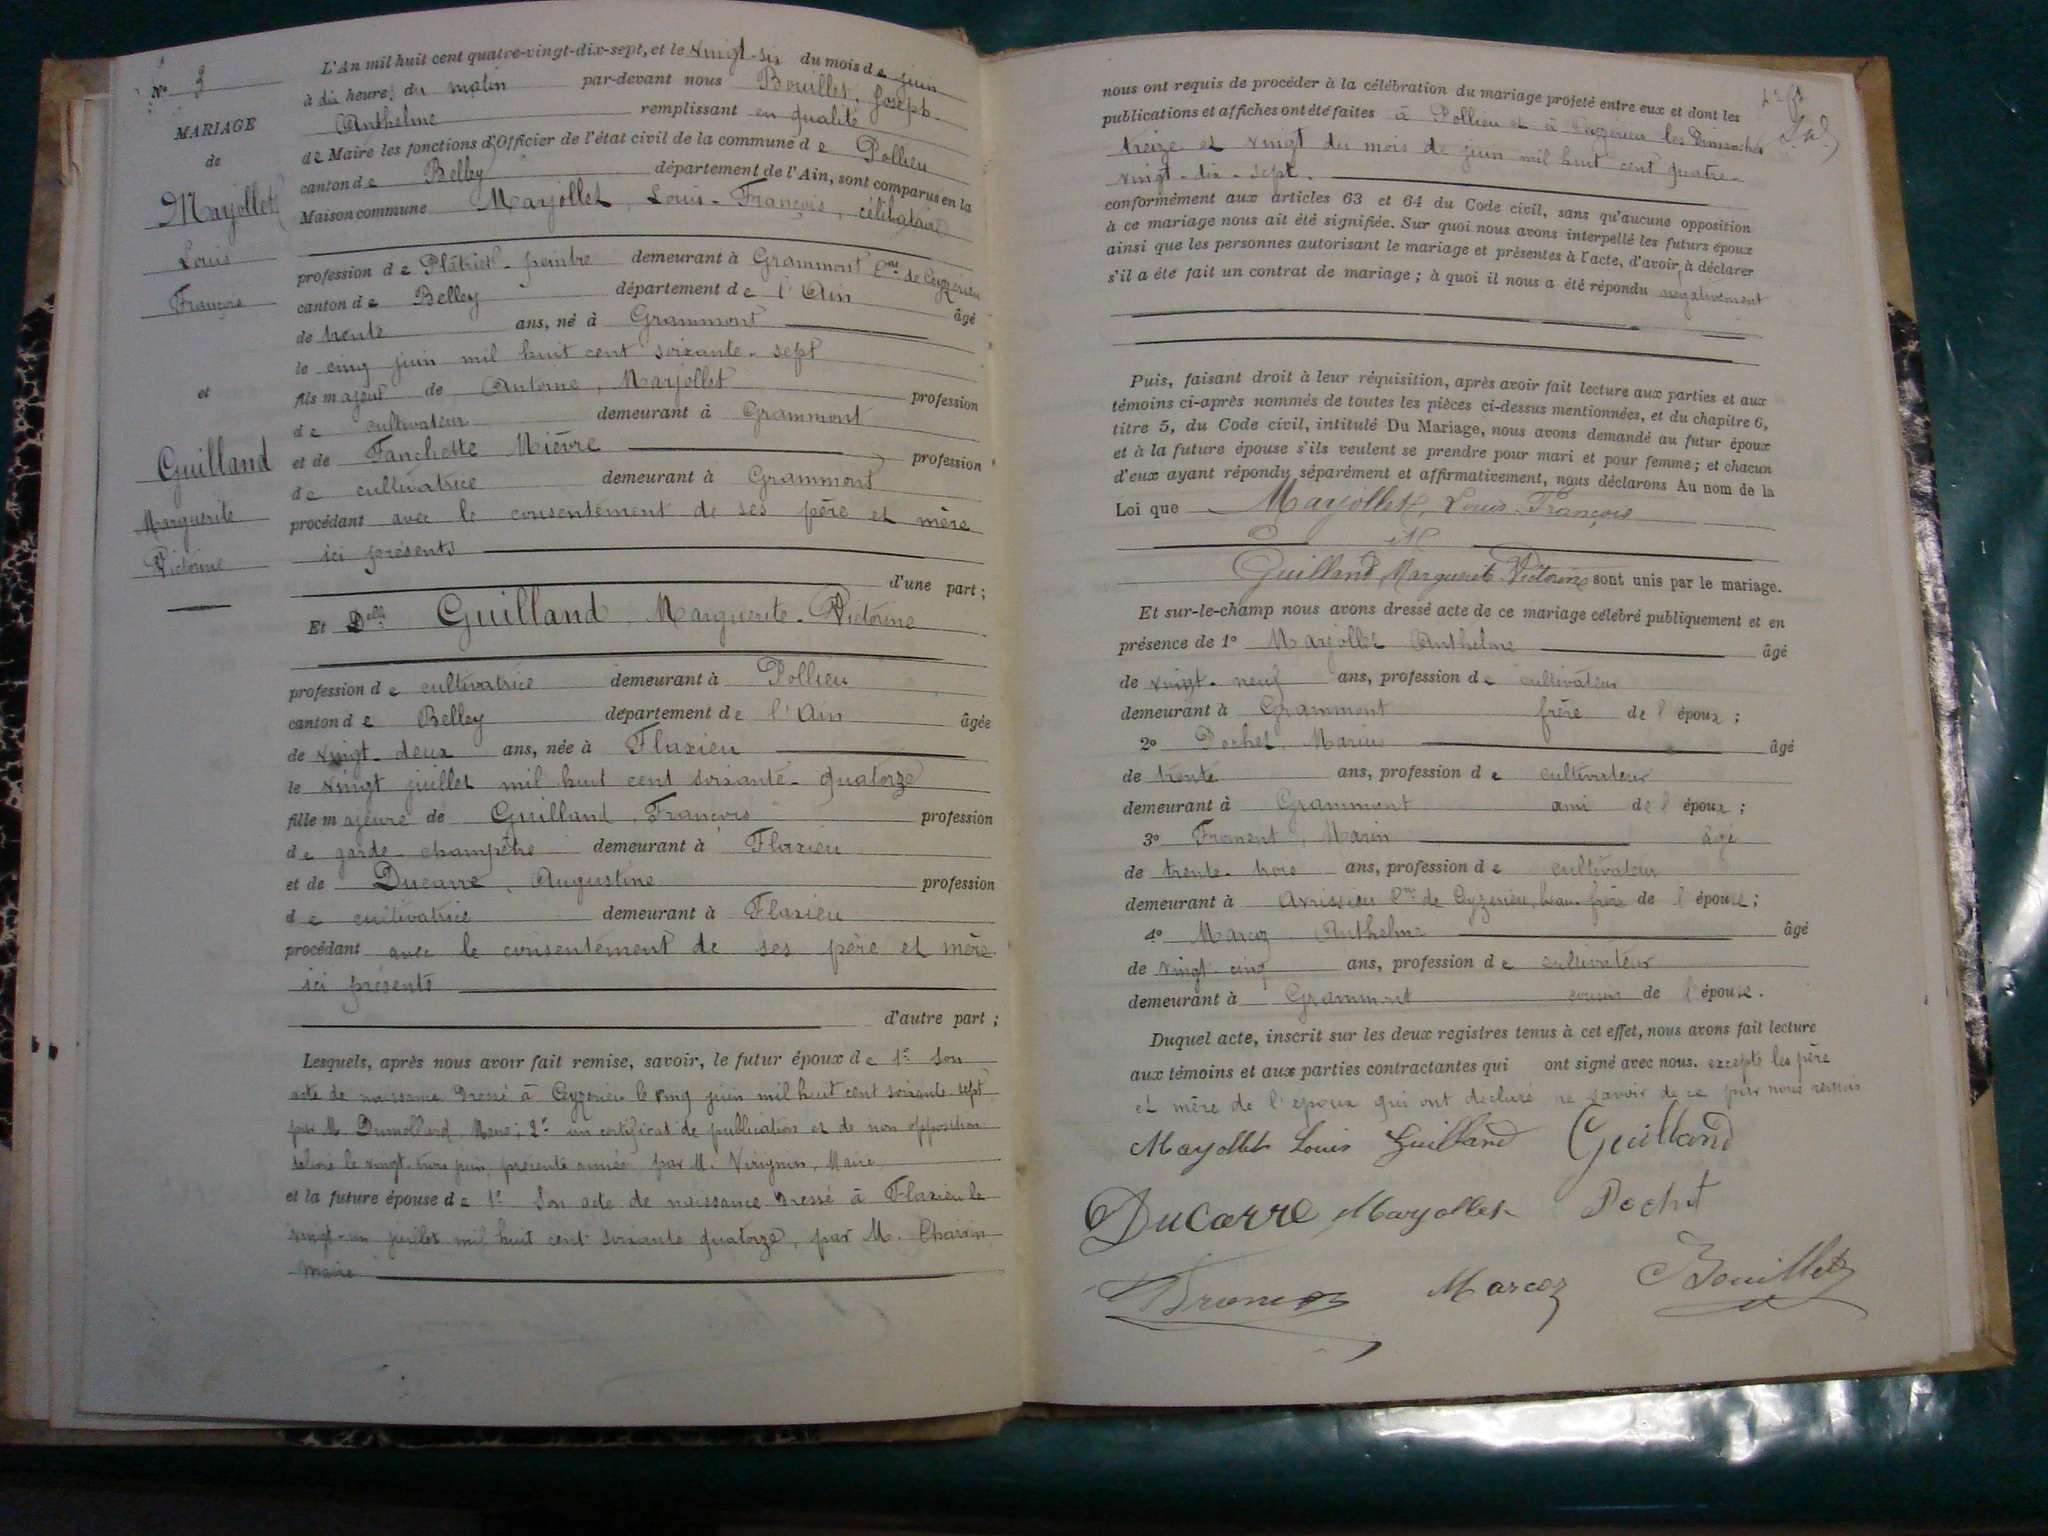 N° 3
MARIAGE
de
Marjollet
Louis
François
et
Guilland
Marguerite
Victorine
L'An mil huit cent quatre-vingt-dix-sept, et le vingt-six du mois de juin
à dix heures du matin par-devant nous Bouillet, Joseph-
Anthelme remplissant en qualité
de Maire les fonctions d'Officier de l'état civil de la commune de Pollieu
canton de Belley département de l'Ain, sont comparus en la
Maison commune Marjollet, Louis-François, célibataire
profession de Plâtrier-peintre demeurant à Grammont Cne de Ceyzérieu
canton de Belley département de l'Ain âgé
de trente ans, né à Grammont
le cinq juin mil huit cent soixante-sept
fils majeur de Antoine, Marjollet profession
de cultivateur demeurant à Grammont
et de Fanchette Mièvre profession
de cultivatrice demeurant à Grammont
procédant avec le consentement de ses père et mère
ici présents
d'une part ;
Et Delle Guilland Marguerite-Victorine
profession de cultivatrice demeurant à Pollieu
canton de Belley département de l'Ain âgée
de vingt-deux ans, née à Flaxieu
le vingt juillet mil huit cent soixante-quatorze
fille majeure de Guilland, François profession
de garde-champêtre demeurant à Flaxieu
et de Ducarre, Augustine profession
de cultivatrice demeurant à Flaxieu
procédant avec le consentement de ses père et mère
ici présents
d'autre part ;
Lesquels, après nous avoir fait remise, savoir, le futur époux de 1° Son
acte de naissance dressé à Ceyzérieu le cinq juin mil huit cent soixante-sept
par M. Dumollard, Maire ; 2° un certificat de publication et de non opposition
délivré le vingt-trois juin présente année par M. Virignin, Maire
et la future épouse de 1° Son acte de naissance dressé à Flaxieu le
vingt-un juillet mil huit cent soixante quatorze, par M. Charvin
Maire
nous ont requis de procéder à la célébration du mariage projeté entre eux et dont les
publications et affiches ont été faites à Pollieu et à Ceyzérieu les Dimanches
treize et vingt du mois de juin mil huit cent quatre-
vingt-dix-sept.
conformément aux articles 63 et 64 du Code civil, sans qu'aucune opposition
à ce mariage nous ait été signifiée. Sur quoi nous avons interpellé les futurs époux
ainsi que les personnes autorisant le mariage et présentes à l'acte, d'avoir à déclarer
s'il a été fait un contrat de mariage ; à quoi il nous a été répondu négativement
Puis, faisant droit à leur réquisition, après avoir fait lecture aux parties et aux
témoins ci-après nommés de toutes les pièces ci-dessus mentionnées, et du chapitre 6,
titre 5, du Code civil, intitulé Du Mariage, nous avons demandé au futur époux
et à la future épouse s'ils veulent se prendre pour mari et pour femme ; et chacun
d'eux ayant répondu séparément et affirmativement, nous déclarons Au nom de la
Loi que Marjollet, Louis-François
et
Guilland, Marguerite-Victorine sont unis par le mariage.
Et sur-le-champ nous avons dressé acte de ce mariage célébré publiquement et en
présence de 1° Marjollet Anthelme âgé
de vingt-neuf ans, profession de cultivateur
demeurant à Grammont frère de l'époux ;
2° Pochet, Marius âgé
de trente ans, profession de cultivateur
demeurant à Grammont ami de l'époux ;
3° Froment, Marin âgé
de trente-trois ans, profession de cultivateur
demeurant à Avrissieu Cne de Ceyzérieu, beau-frère de l'épouse ;
4° Marcoz Anthelme âgé
de vingt-cinq ans, profession de cultivateur
demeurant à Grammont cousin de l'épouse.
Duquel acte, inscrit sur les deux registres tenus à cet effet, nous avons fait lecture
aux témoins et aux parties contractantes qui ont signé avec nous. excepté les père
et mère de l'époux qui ont déclaré ne savoir de ce par nous requis
Marjollet Louis Guilland Guilland
Ducarre Marjollet Pochet
Froment Marcoz Bouillet